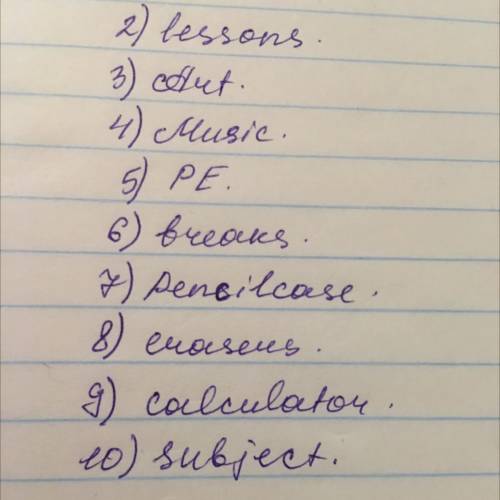 2) lessons.
3) Art.
4) Music.
5) PE.
6) breaks.
7) pencilcase.
8) erasers.
9) calculator.
10) subject.